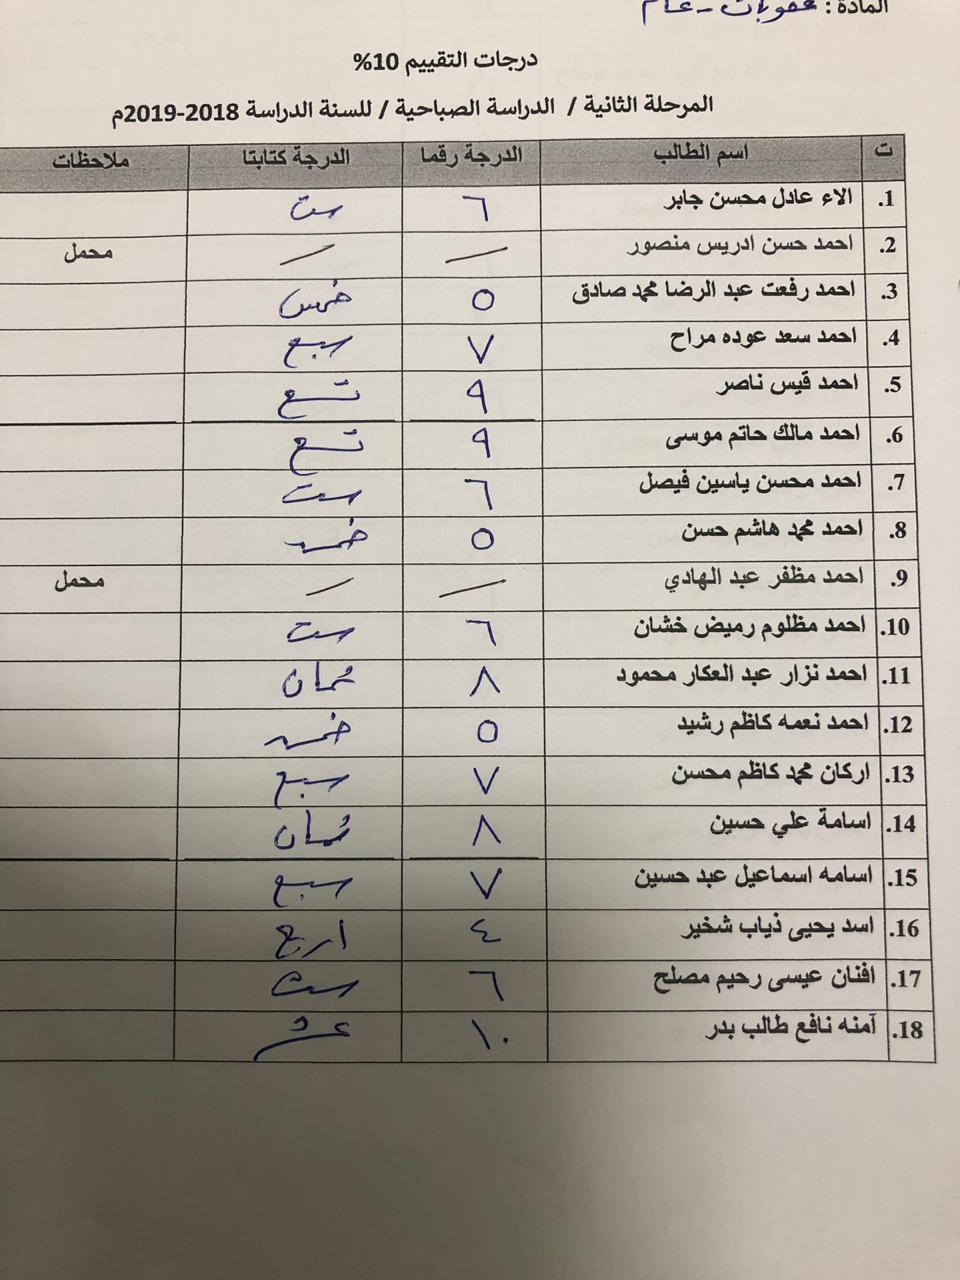 المادة : عقوبات - عام
درجات التقييم 10%
المرحلة الثانية / الدراسة الصباحية / للسنة الدراسة 2018-2019م
ت اسم الطالب الدرجة رقما الدرجة كتابتا ملاحظات
1. الاء عادل محسن جابر ٦ ست
2. احمد حسن ادريس منصور — — محمل
3. احمد رفعت عبد الرضا محمد صادق ٥ خمس
4. احمد سعد عوده مراح ٧ سبع
5. احمد قيس ناصر ٩ تسع
6. احمد مالك حاتم موسى ٩ تسع
7. احمد محسن ياسين فيصل ٦ ست
8. احمد محمد هاشم حسن ٥ خمس
9. احمد مظفر عبد الهادي — — محمل
10. احمد مظلوم رميض خشان ٦ ست
11. احمد نزار عبد العكار محمود ٨ ثمان
12. احمد نعمه كاظم رشيد ٥ خمس
13. اركان محمد كاظم محسن ٧ سبع
14. اسامة علي حسين ٨ ثمان
15. اسامه اسماعيل عبد حسين ٧ سبع
16. اسد يحيى ذياب شخير ٤ اربع
17. افنان عيسى رحيم مصلح ٦ ست
18. آمنه نافع طالب بدر ١٠ عشر